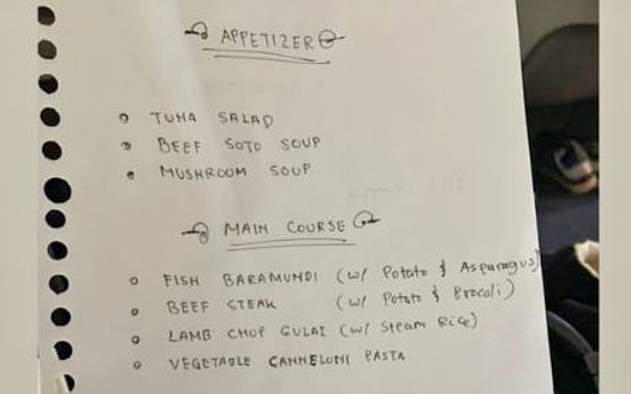 APPETIZER
TUNA SALAD
BEEF SOTO SOUP
MUSHROOM SOUP
MAIN COURSE
FISH BARAMUNDI (w/ Potato & Asparagus)
BEEF STEAK (w/ Potato & Brocoli)
LAMB CHOP GULAI (w/ Steam Rice)
VEGETABLE CANNELONI PASTA